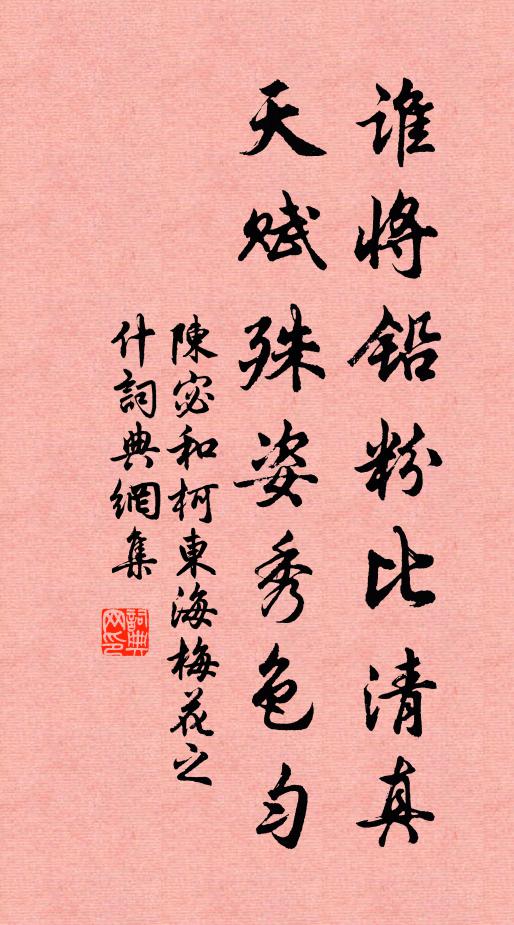 谁將铅粉比清真
天赋殊姿秀色匀
陳宓和柯東海梅花之
什詞典網集
詞典
网印